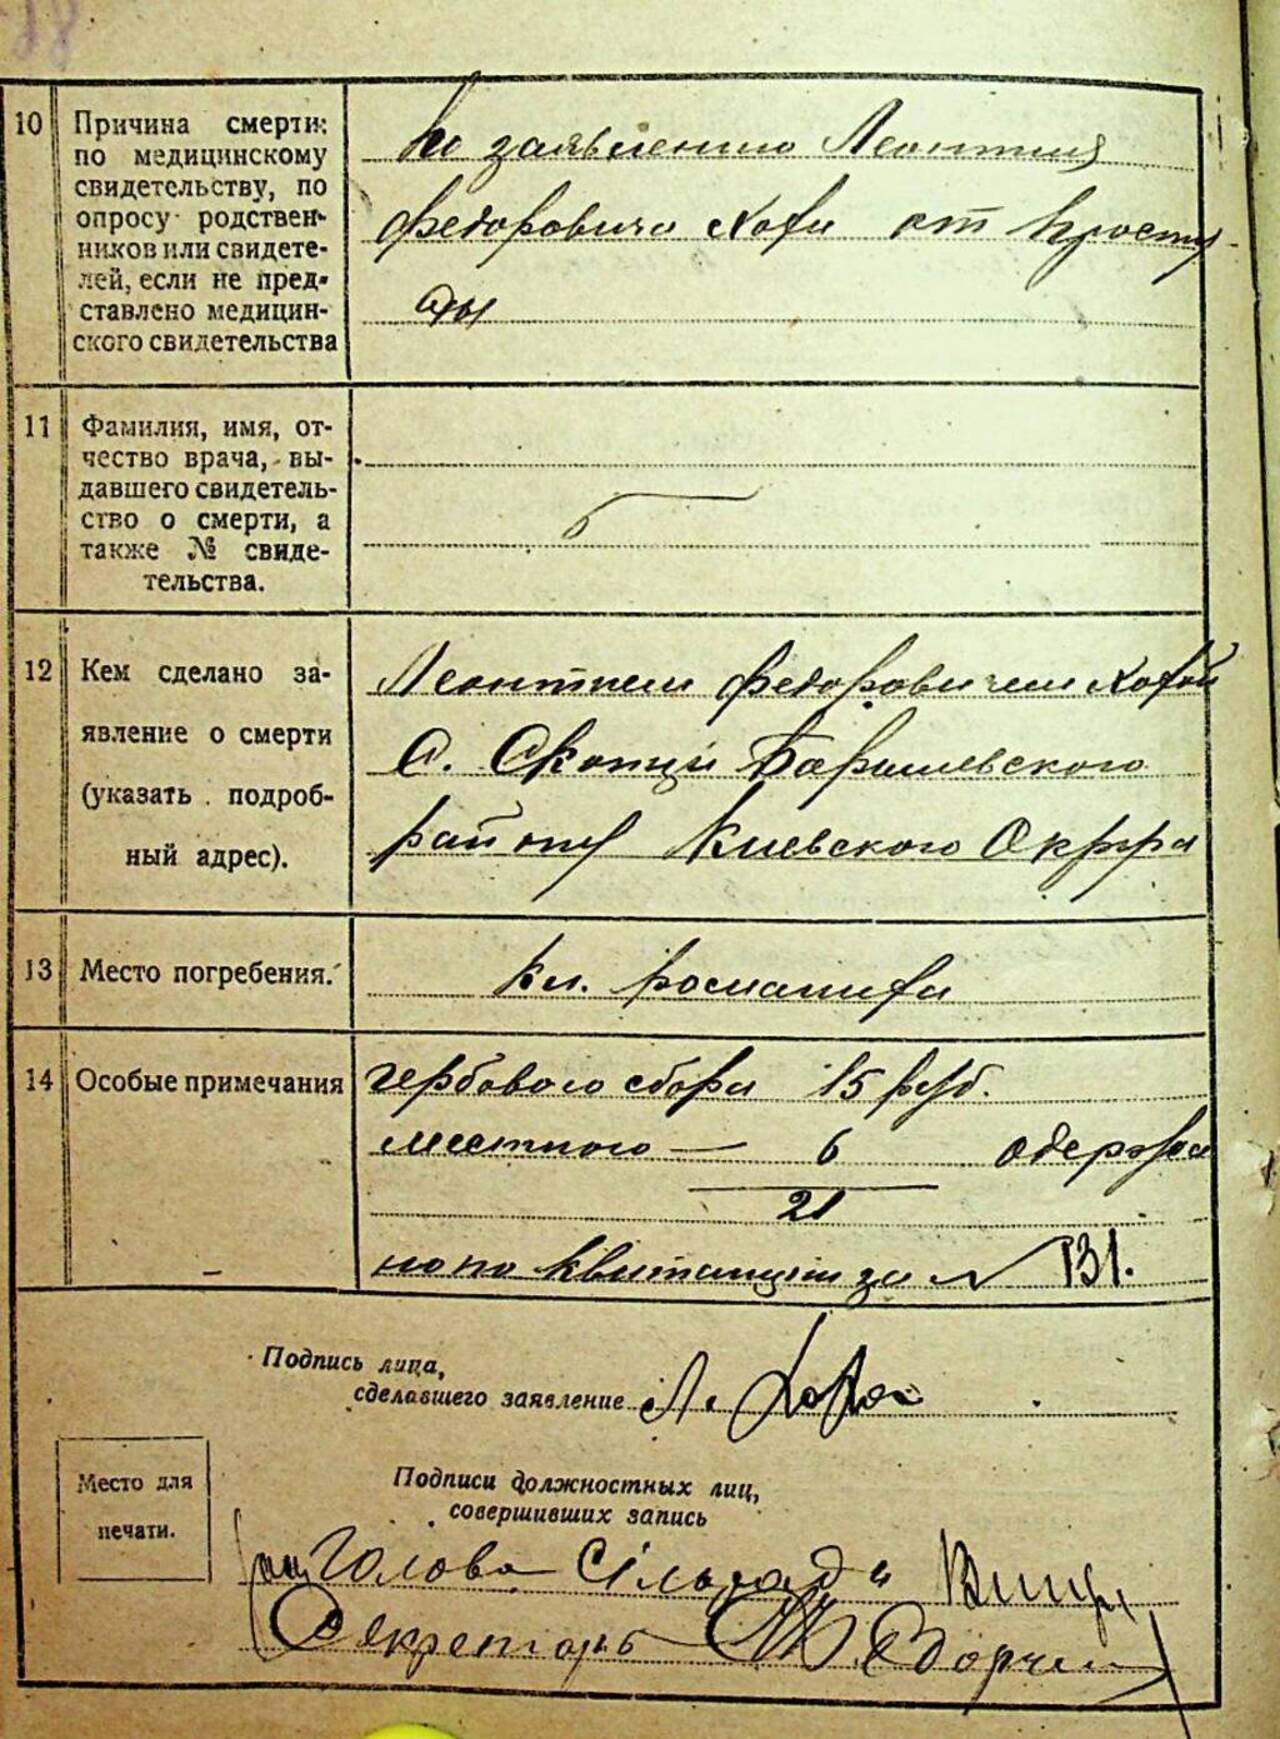 10 Причина смерти:
по медицинскому
свидетельству, по
опросу родствен-
ников или свидете-
лей, если не пред-
ставлено медицин-
ского свидетельства
По заявлению Леонтия
Федоровича от просту-
ды
11 Фамилия, имя, от-
чество врача, вы-
давшего свидетель-
ство о смерти, а
также № свиде-
тельства.
12 Кем сделано за-
явление о смерти
(указать подроб-
ный адрес).
Леонтием Федоровичем
С. Скопци Баришевского
району Киевского Округа
13 Место погребения.
14 Особые примечания
гербового сбора 15 руб.
местного — 6 одержа
21
но по квитанции за № 131.
Подпись лица,
сделавшего заявление Л.
Место для
печати.
Подписи должностных лиц,
совершивших запись
Голова Сільради
Секретарь